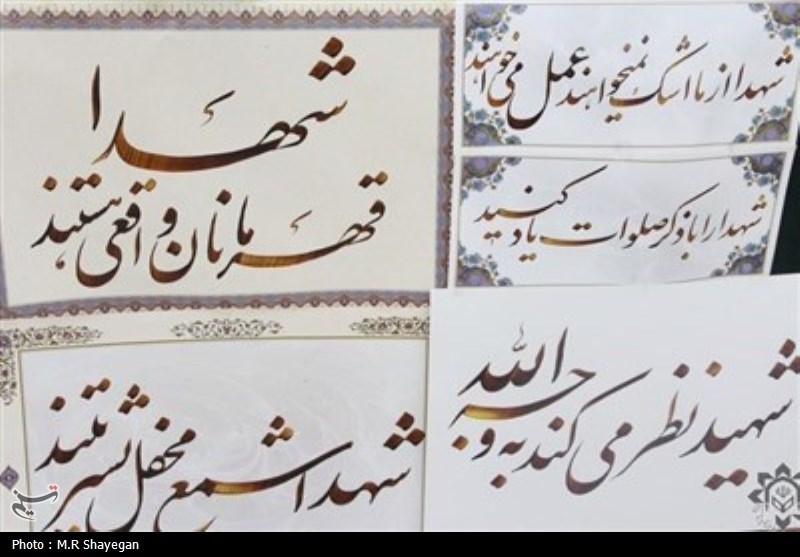 شهدا
قهرمانان واقعی هستند
شهدا از ما اشک نمیخواهند عمل می خواهند
شهدا را با ذکر صلوات یاد کنید
شهدا شمع محفل بشریتند
شهید نظر می کند به وجه الله
تسنیم
Photo : M.R Shayegan